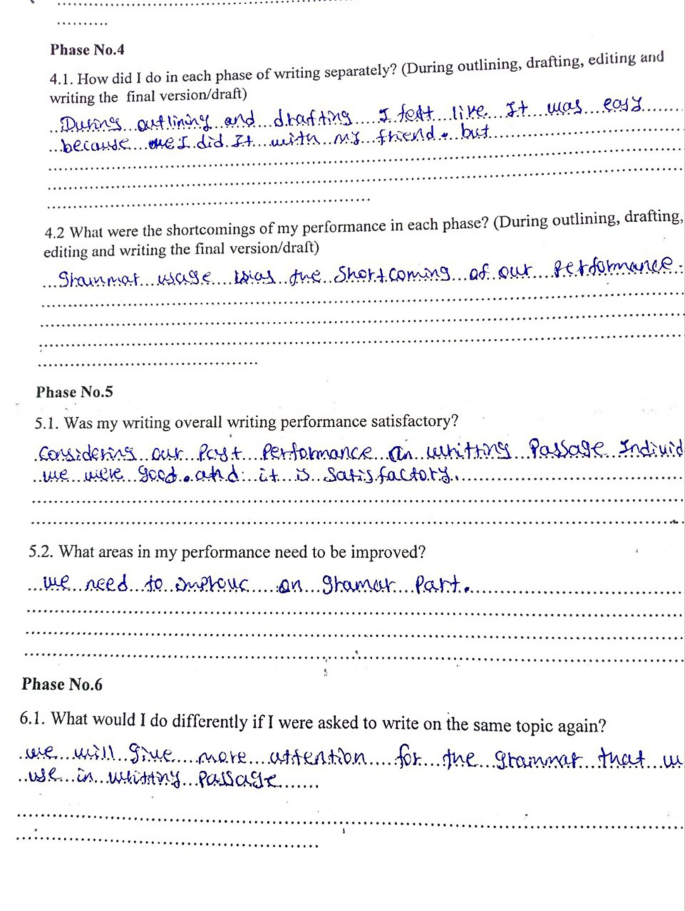 Phase No.4
4.1. How did I do in each phase of writing separately? (During outlining, drafting, editing and
writing the final version/draft)
During outlining and drafting I felt like It was easy
because I did It with my friend. but
4.2 What were the shortcomings of my performance in each phase? (During outlining, drafting,
editing and writing the final version/draft)
Grammar usage was the Shortcoming of our Performance.
Phase No.5
5.1. Was my writing overall writing performance satisfactory?
Considering our Past Performance in writting Passage Individ
we were good. and it is satisfactory.
5.2. What areas in my performance need to be improved?
we need to improve on gramar Part.
Phase No.6
6.1. What would I do differently if I were asked to write on the same topic again?
we will give more attention for the grammar that w
use in writting Passage